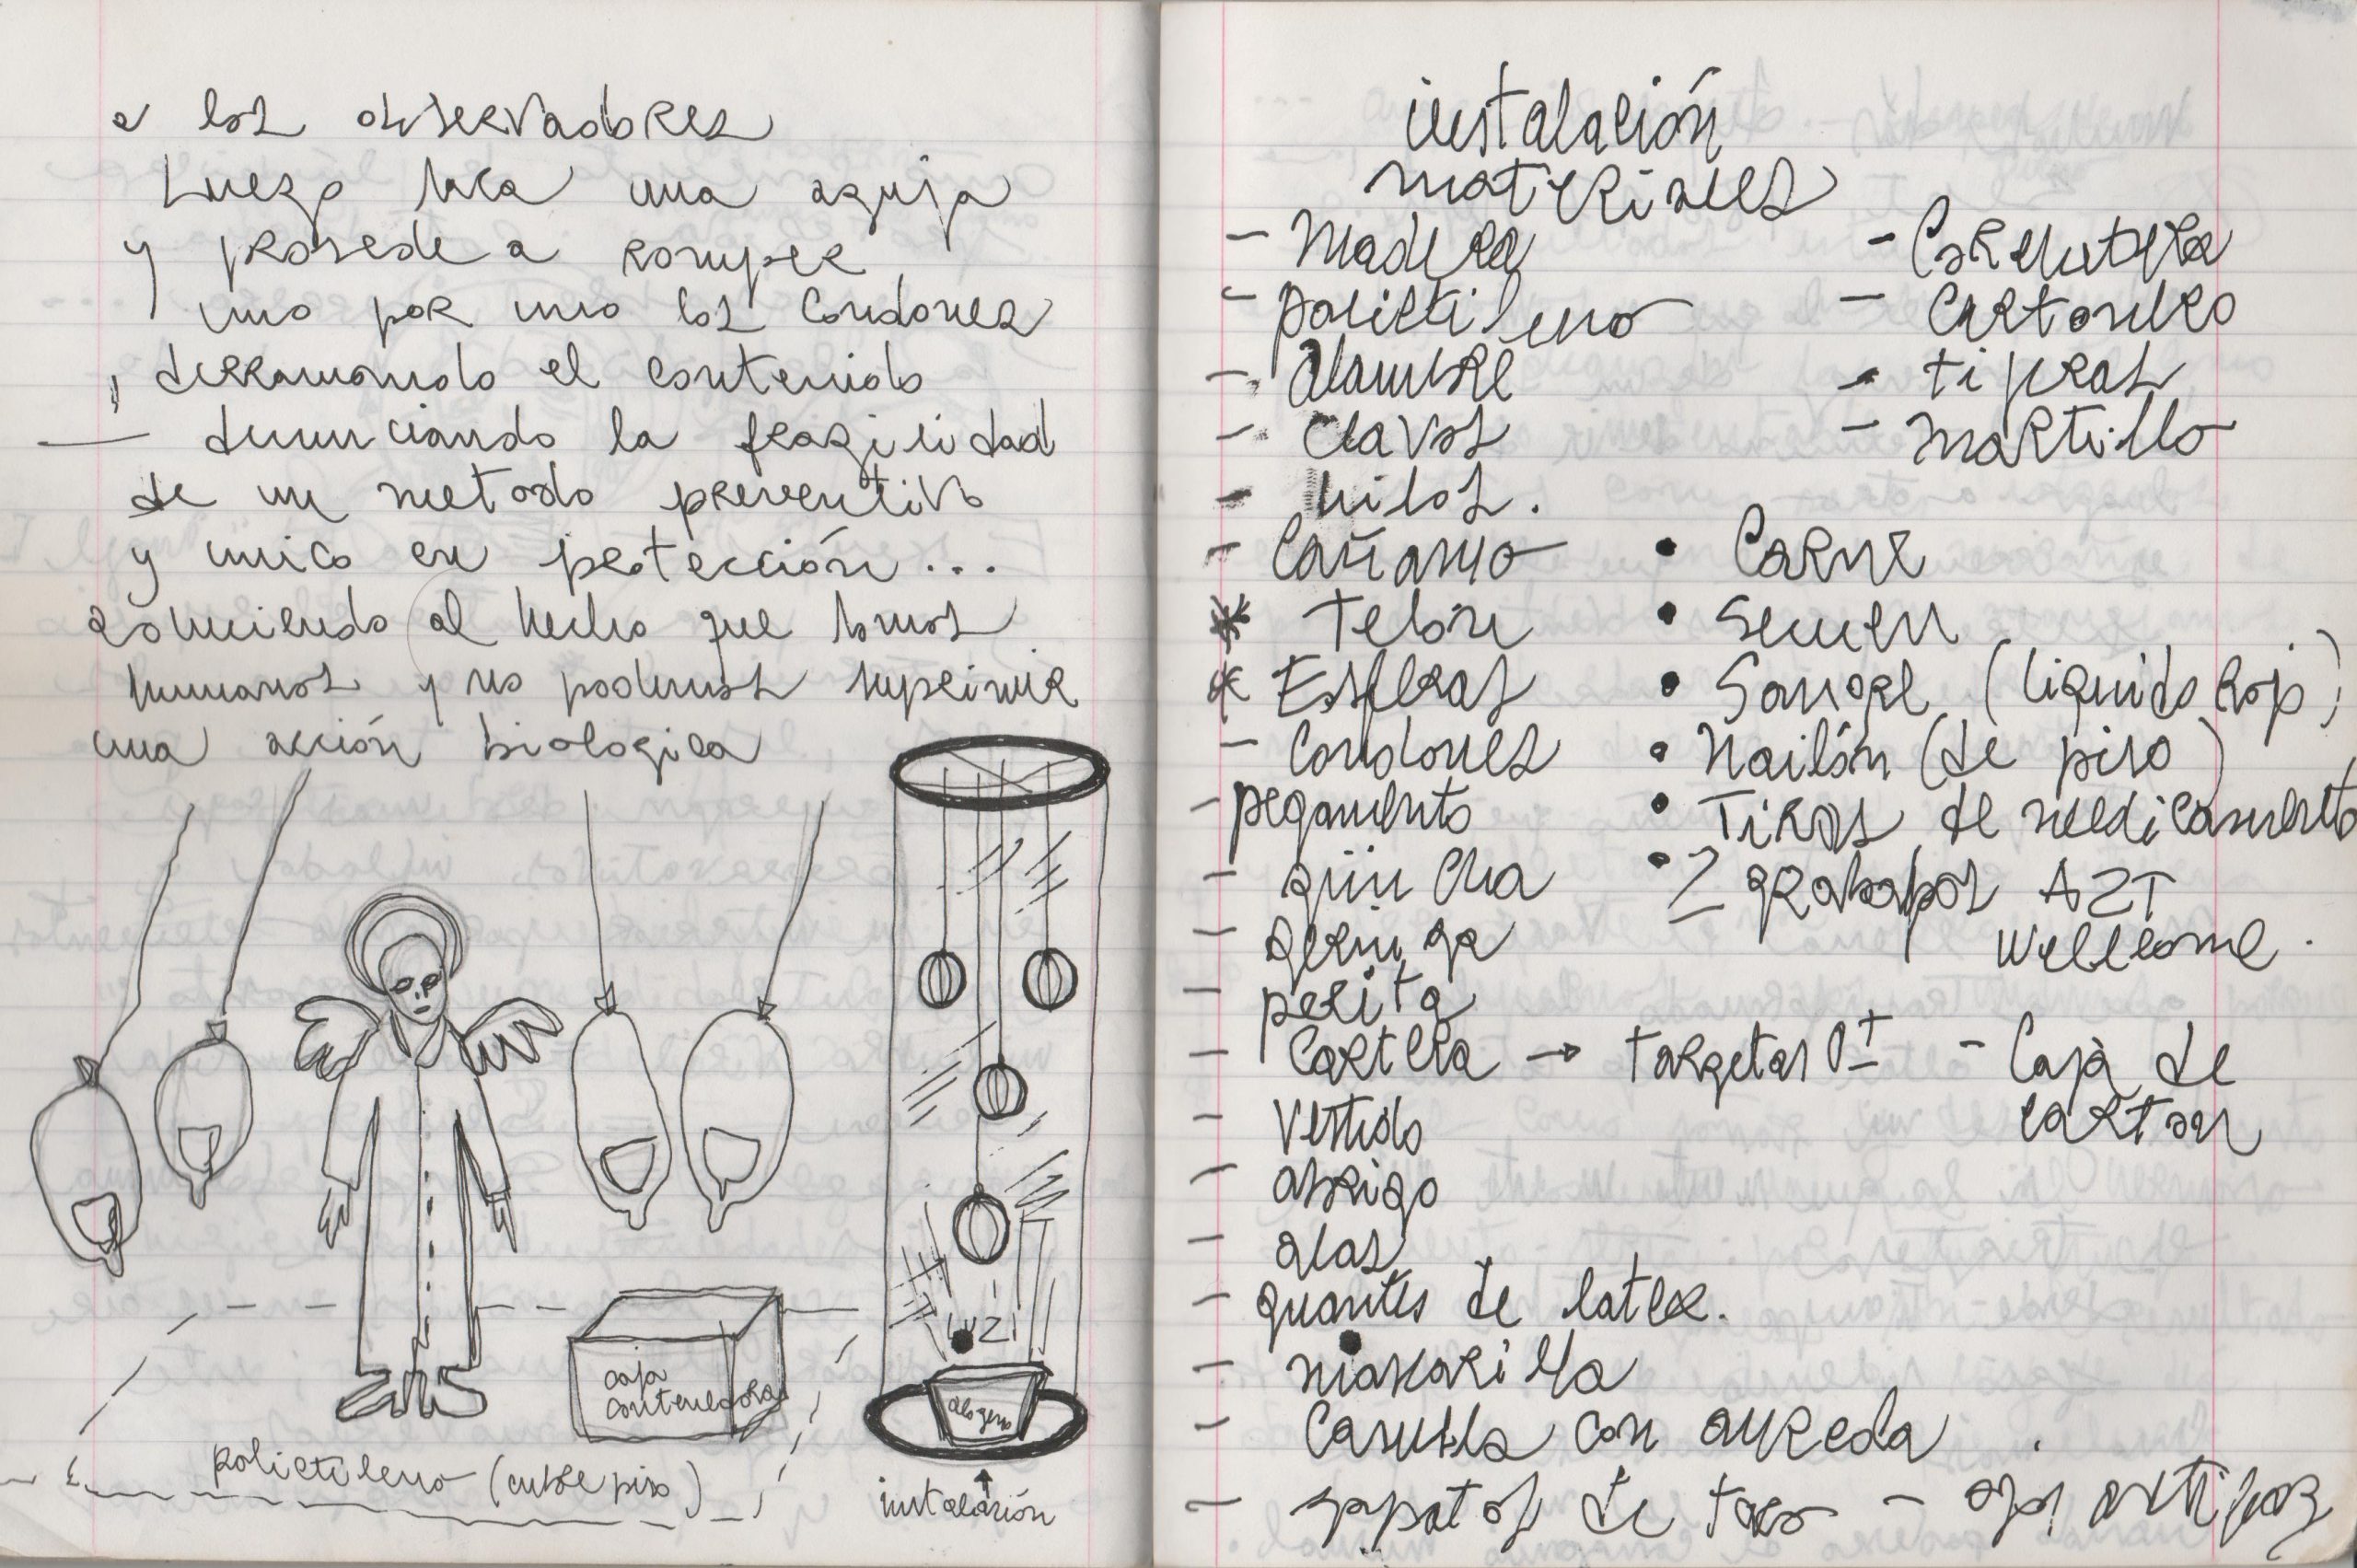 a los observadores
Luego saca una aguja
y prosede a romper
uno por uno los condones
, derramando el contenido
— denunciando la fragilidad
de un metodo preventivo
y unico en protección...
aduciendo al hecho que somos
humanos y no podemos suprimir
una acción biologica
caja
contenedora
polietileno (cubre piso)
LUZ
alogeno
instalación
instalación
materiales
- Madera
- polietileno
- Alambre
- Clavos
- hilos.
- Cañamo
* Telón
* Esferas
- Condones
- pegamento
- güincha
- geringa
- perita
- Cartera → targetas O±
- Vestido
- abrigo
- alas
- guantes de latex.
- maskarilla
- Casulla con aureola
- zapatos de taco - ojos artifices
- Corchetera
- Cartonero
- tijeras
- martillo
• Carne
• Semen
• Sangre (liquido rojo)
• Nailón (de piso)
• Tiras de medicamento
• 2 grabados AZT
Wellcome.
- Caja de
carton